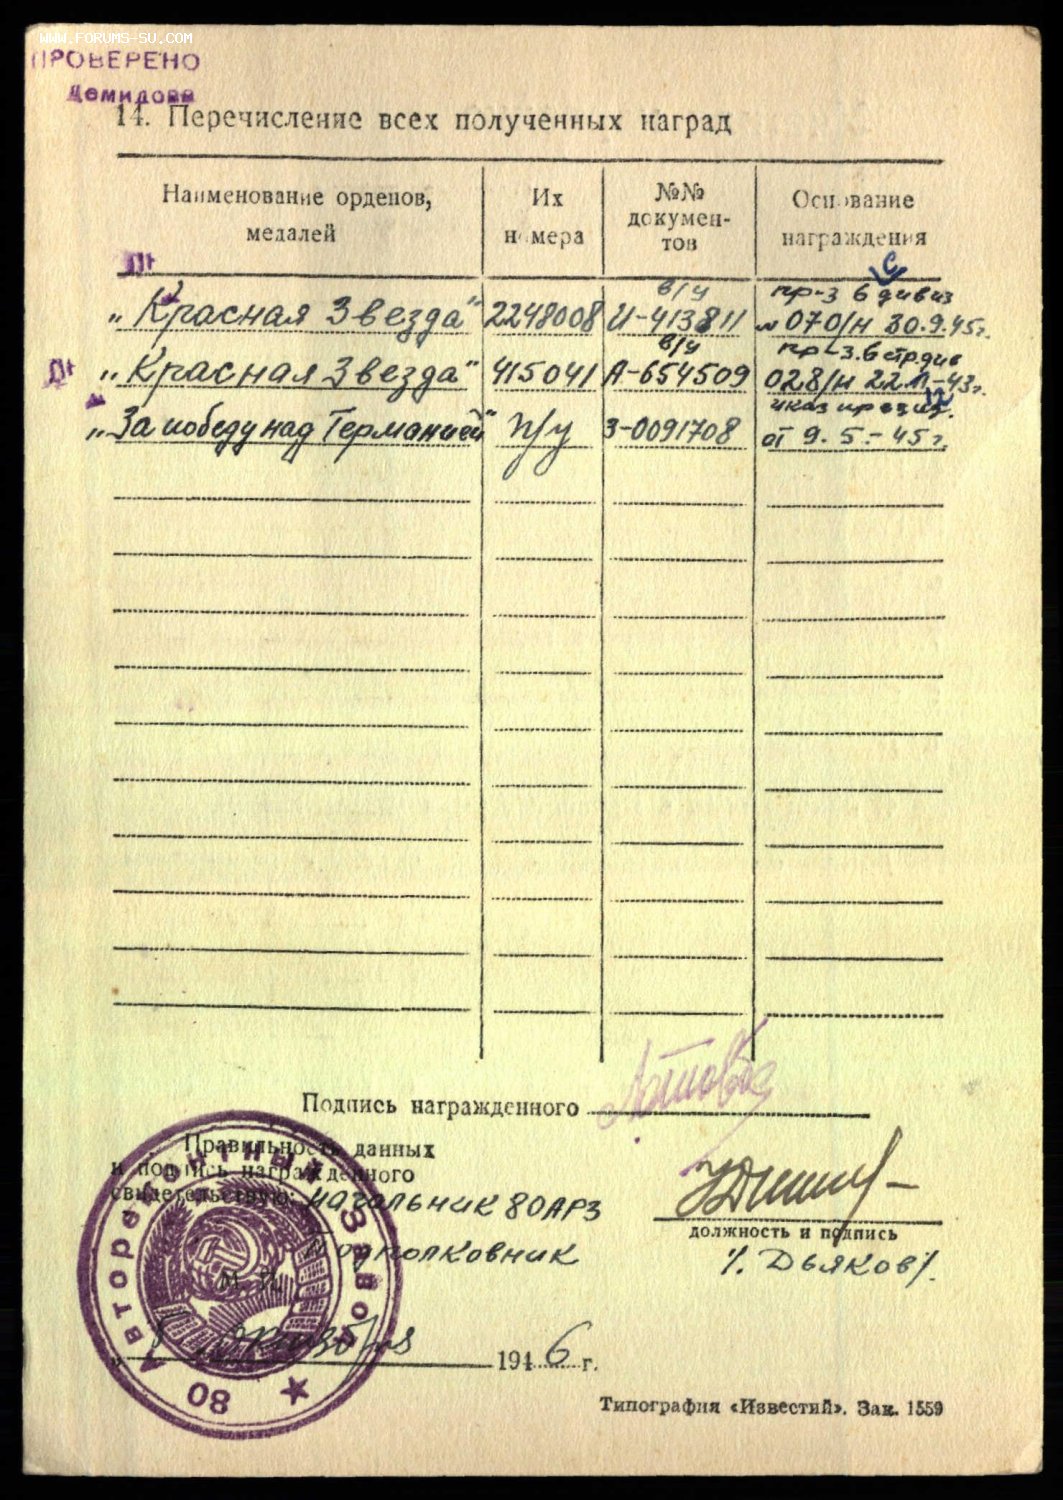 WWW.FORUMS-SU.COM
ПРОВЕРЕНО
Демидова
14. Перечисление всех полученных наград
Наименование орденов, медалей
Их номера
№№ документов
Основание награждения
„Красная Звезда" 2248008 в/у И-413811 пр-з 6 дивиз № 070/н 30.9.45г.
„Красная Звезда" 415041 в/у А-654509 пр-з. 6 стр див 028/н 22 -43г.
„За победу над Германией" н/у З-0091708 указ през. от 9.5.-45 г.
Подпись награжденного
Правильность данных
и подпись награжденного
свидетельствую: начальник 80 АРЗ
Подполковник
должность и подпись
/. Дьяков/.
М. П.
октября 1946 г.
80 Авторемонтный Завод
Типография «Известий». Зак. 1559